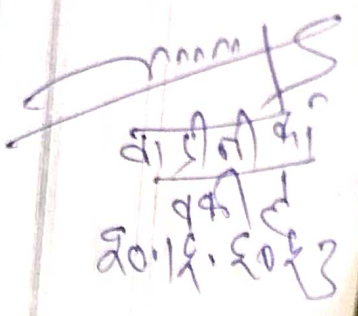 वादीनी का
वकील
२०.१२.२०२३